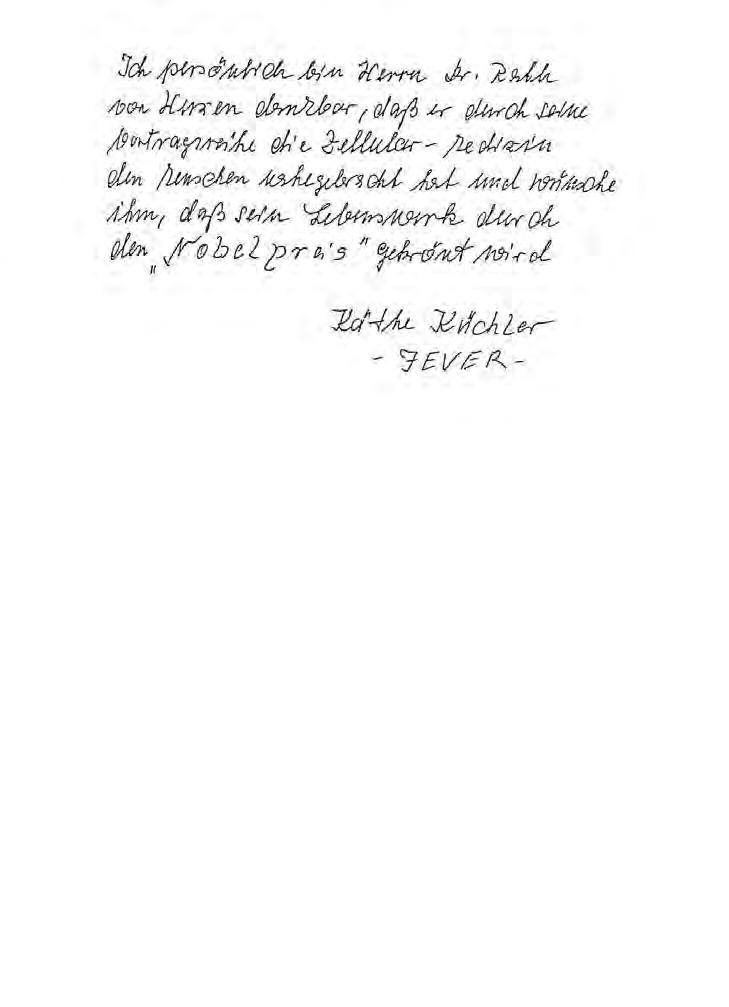 Ich persönlich bin Herrn Dr. Rath
von Herzen dankbar, daß er durch seine
Vortragsreihe die Zellular-Medizin
den Menschen nahegebracht hat und wünsche
ihm, daß sein Lebenswerk durch
den „Nobelpreis" gekrönt wird
Käthe Küchler
- JEVER -